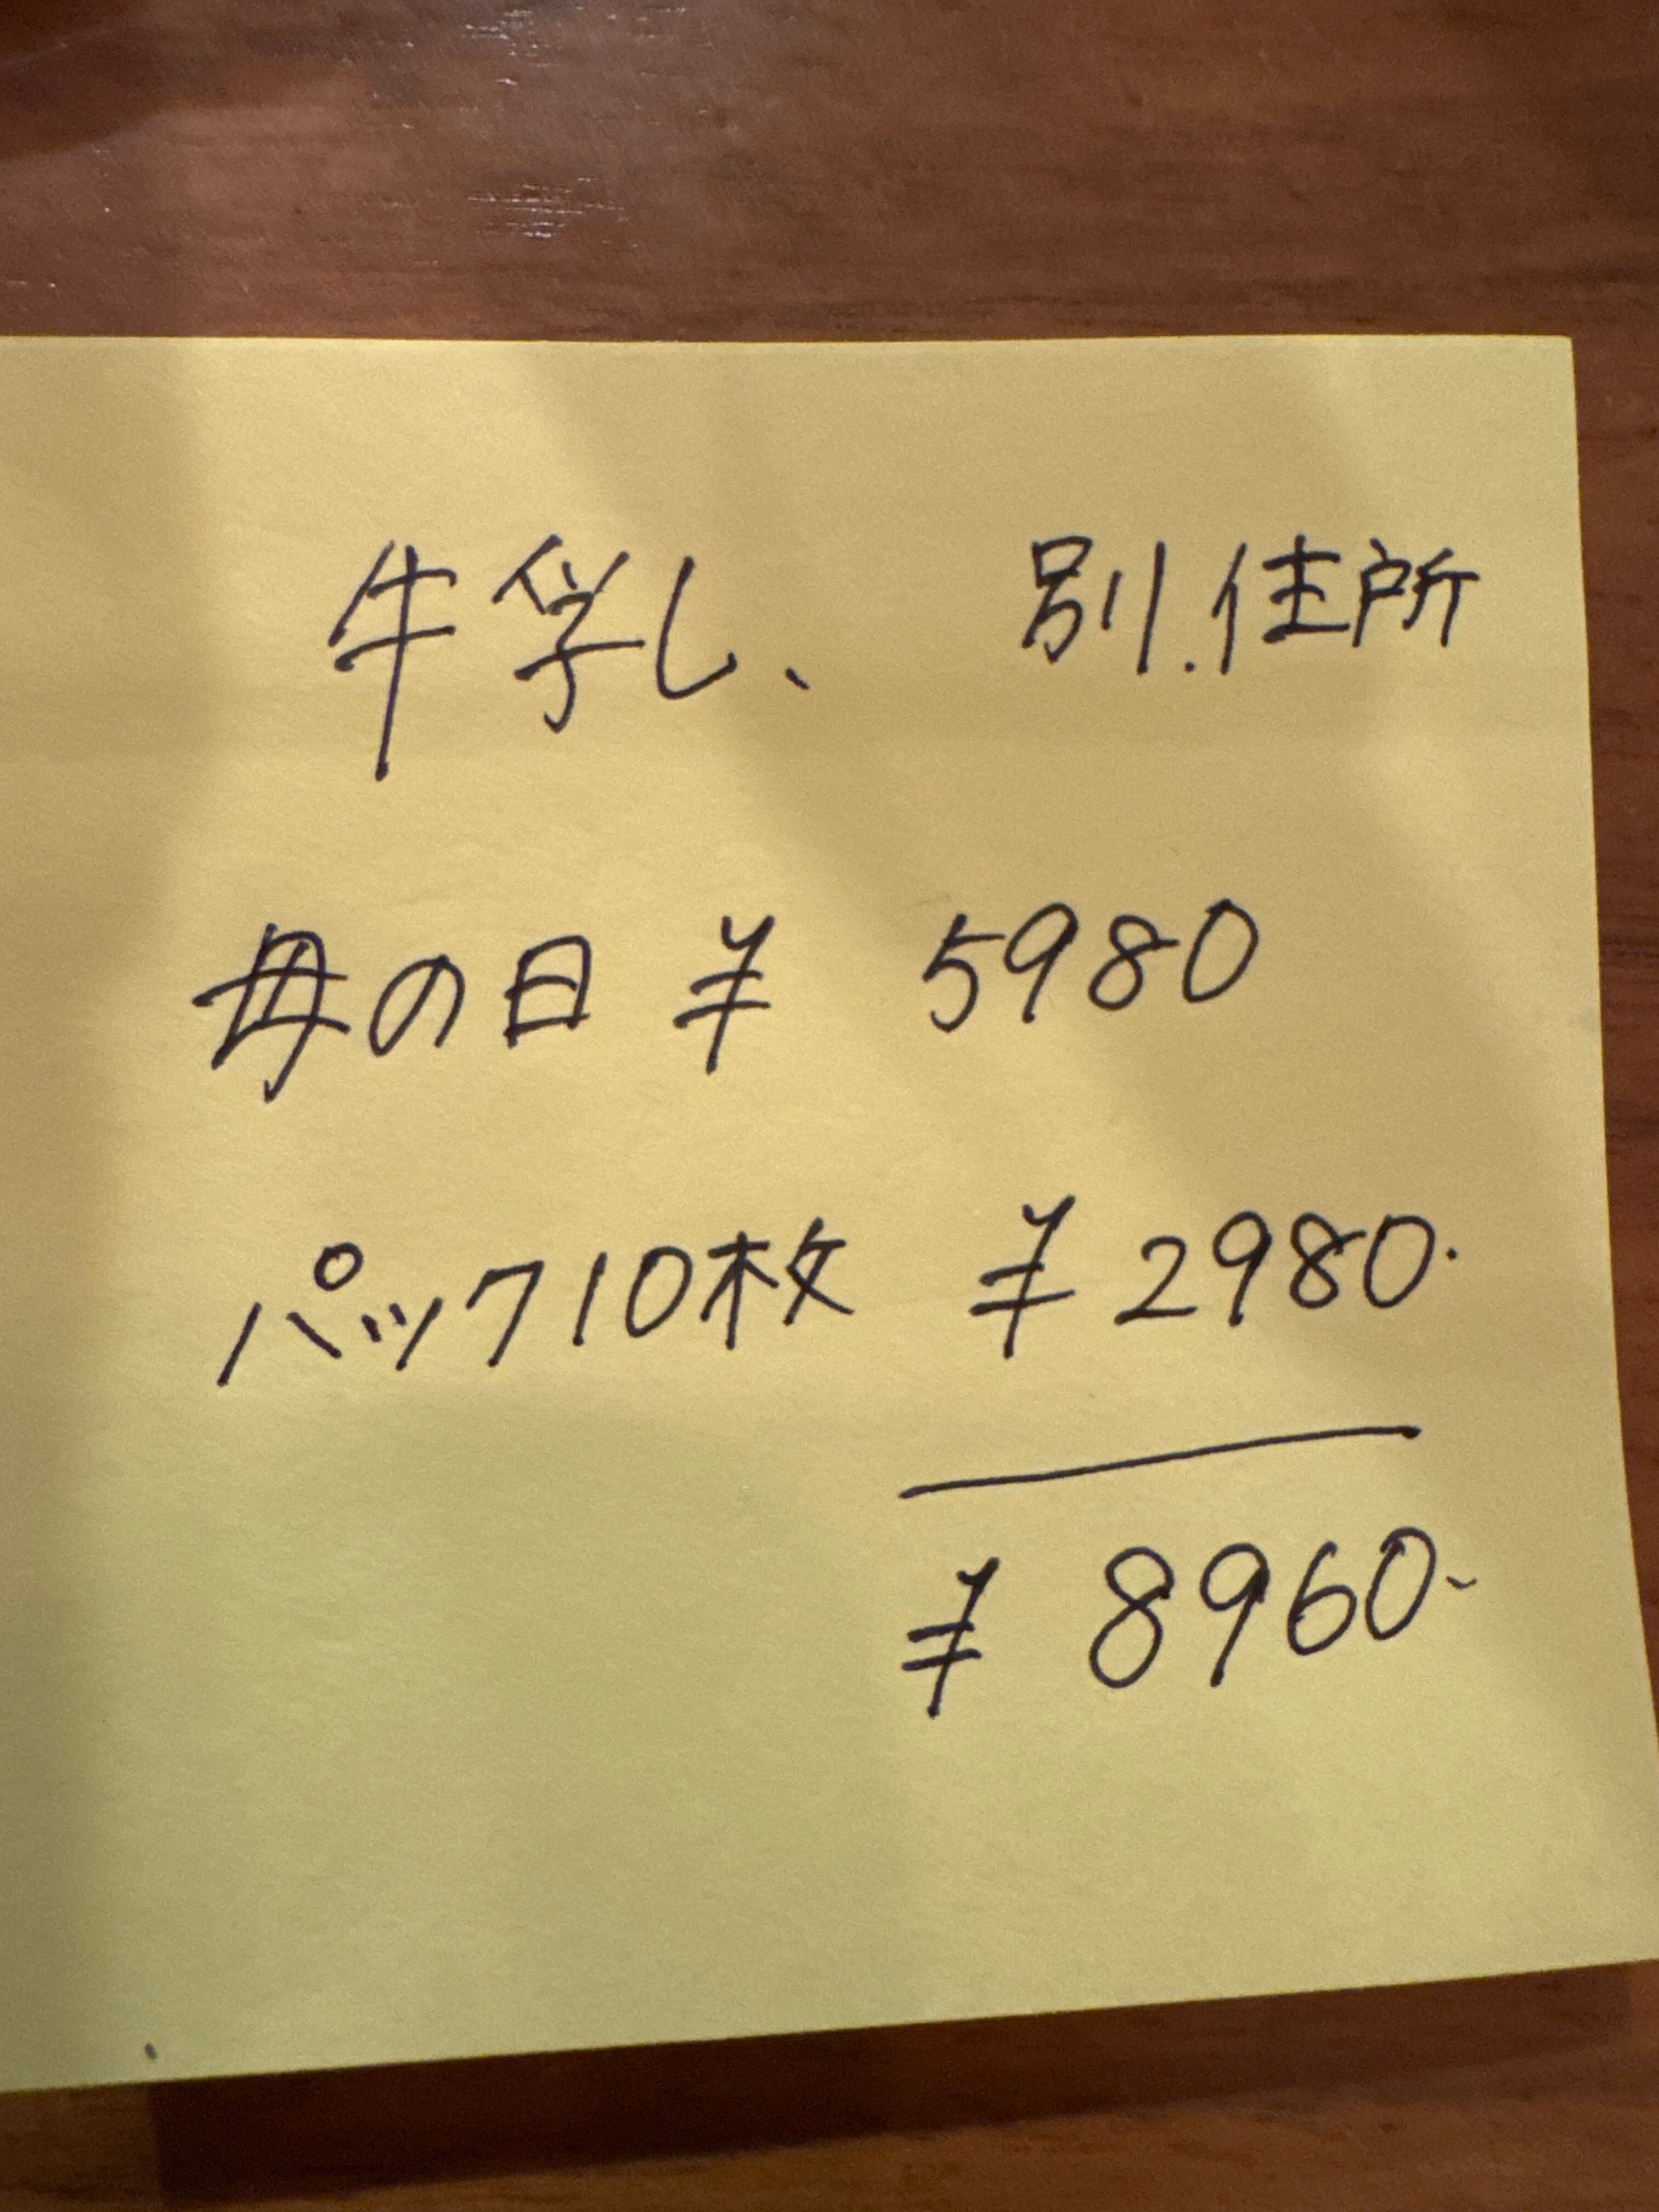 牛乳、 別.住所
母の日 ¥ 5980
パック10枚 ¥ 2980.
¥ 8960-